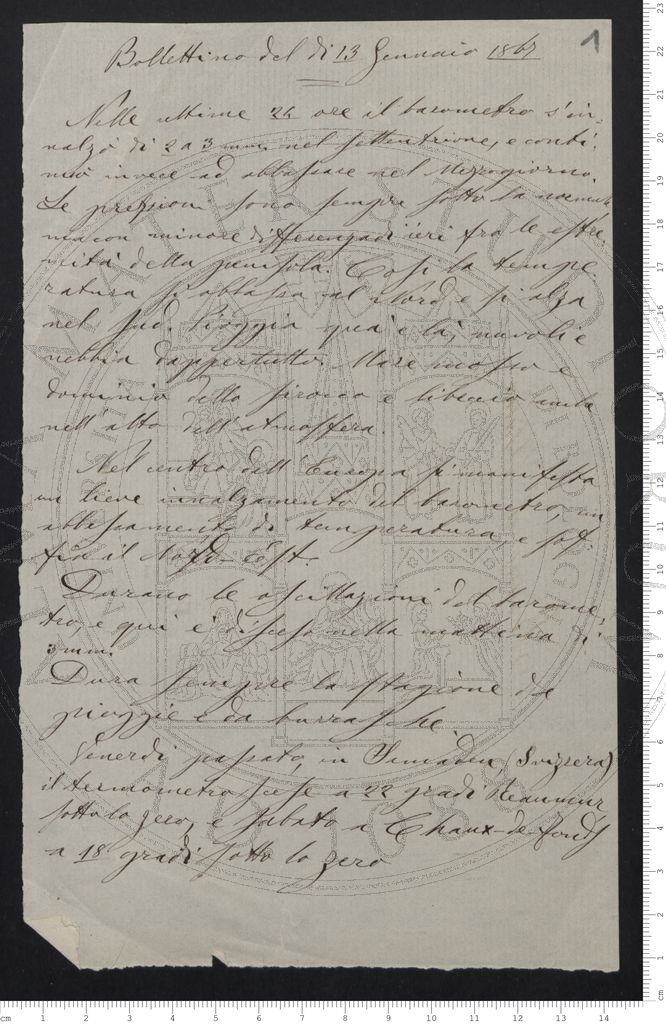 1
Bollettino del dì 13 Gennaio 1867
Nelle ultime 24 ore il barometro s'in-
nalzò di 2 a 3 mm. nel settentrione, e conti-
nuò invece ad abbassare nel Mezzogiorno.
Le pressioni sono sempre sotto la normale
ma con minore differenza di ieri fra le estre-
mità della penisola. Così la tempe-
ratura si abbassa al Nord e si alza
nel sud. Pioggia qua e là, nuvoli e
nebbia dappertutto. Mare mosso e
dominio dello sirocco e libeccio anche
nell'alto dell'atmosfera.
Nel centro dell'Europa si manifesta
un lieve innalzamento del barometro, un
abbassamento di temperatura e sof-
fia il Nord-Est.
Durano le oscillazioni del barome-
tro, e qui è disceso nella mattina di
3 mm.
Dura sempre la stagione da
pioggie e da burrasche.
Venerdì passato, in Samaden (Svizzera)
il termometro scese a 22 gradi Reaumur
sotto lo zero, e sabato a Chaux-de-Fonds
a 18 gradi sotto lo zero